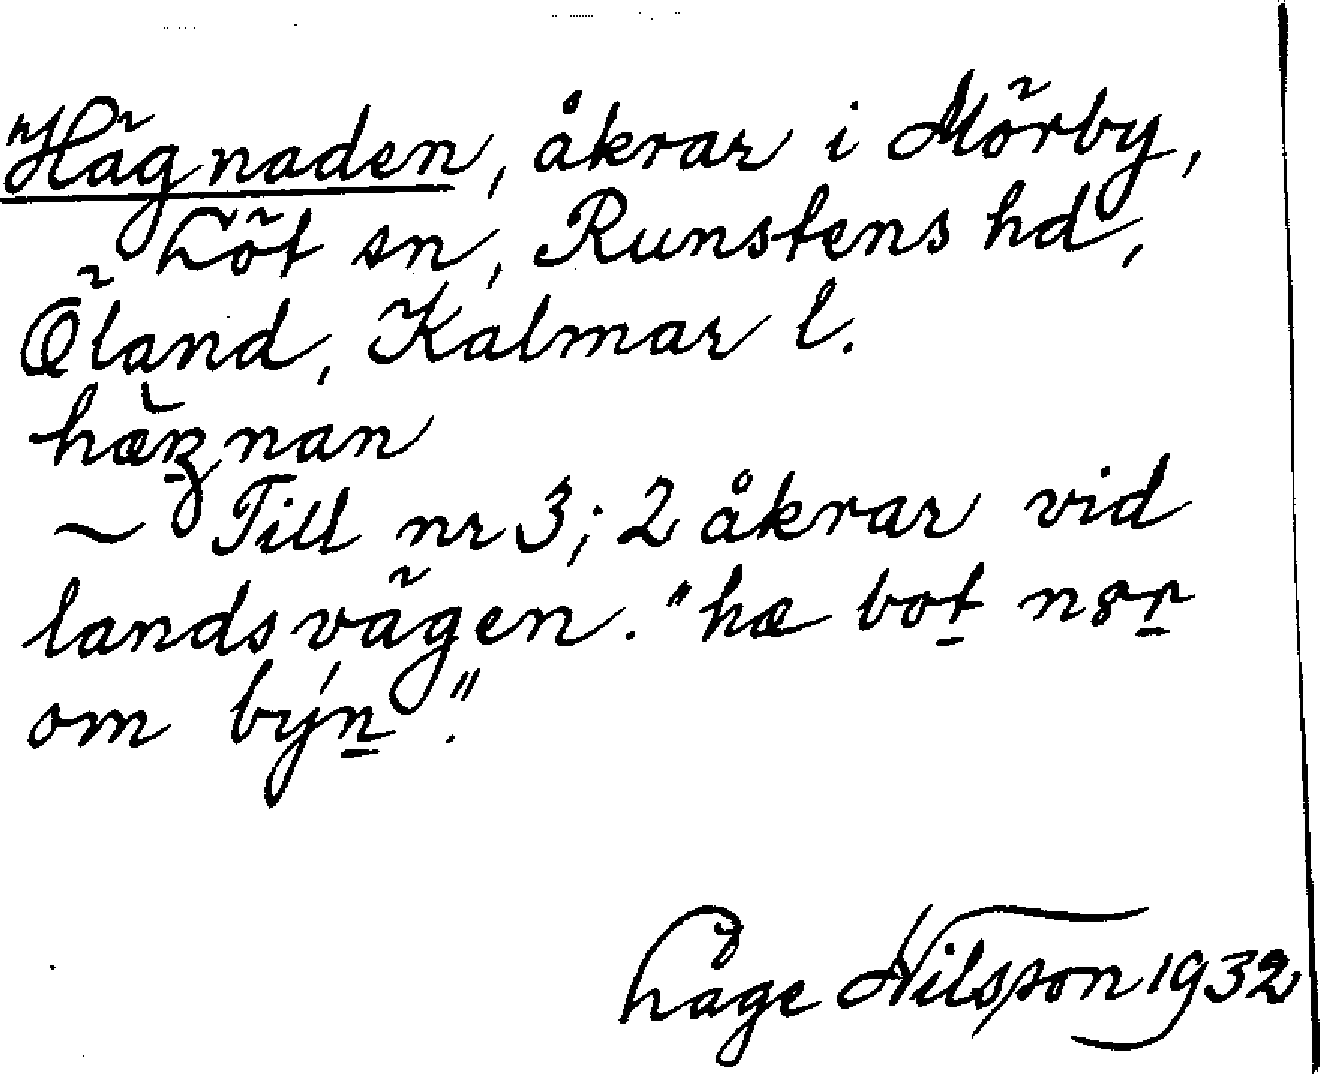 Hägnaden, åkrar i Mörby,
Löt sn, Runstens hd,
Öland, Kalmar l.
~ Till nr 3; 2 åkrar vid
landsvägen. "hæ bot̲ nɤr̲
om býn̲."
Nilsson 1932